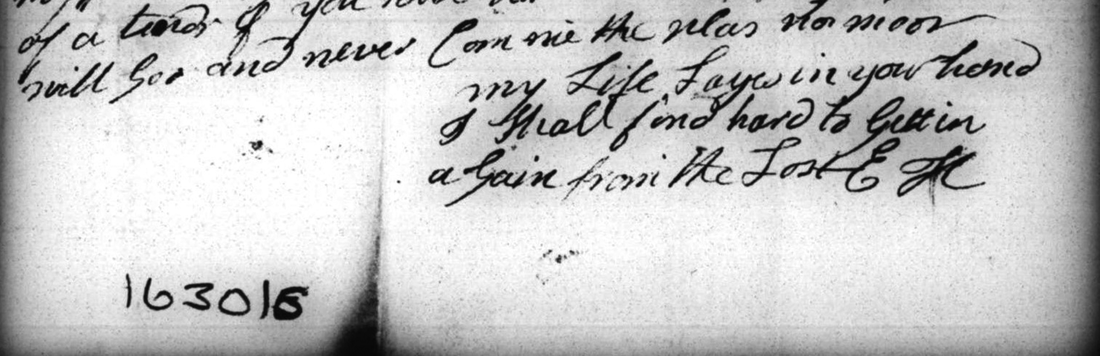 of a turds if you
will Goo and never Com me the plas no moor
my Life Layes in your hand
I Shall find hard to Gitt in
a Gain from the Lost E H
163015